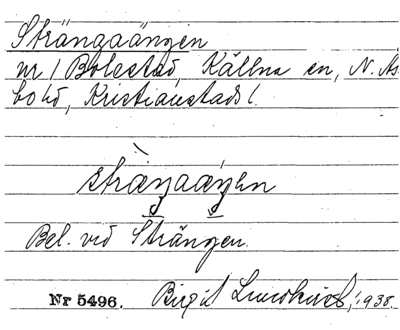 Strängaängen
nr 1 Bolestad, Källna sn, N. Ås-
bo hd, Kristianstads l.
stræŋaæŋen
Bel. vid Strängen.
Nr 5496. Birgit 1938.